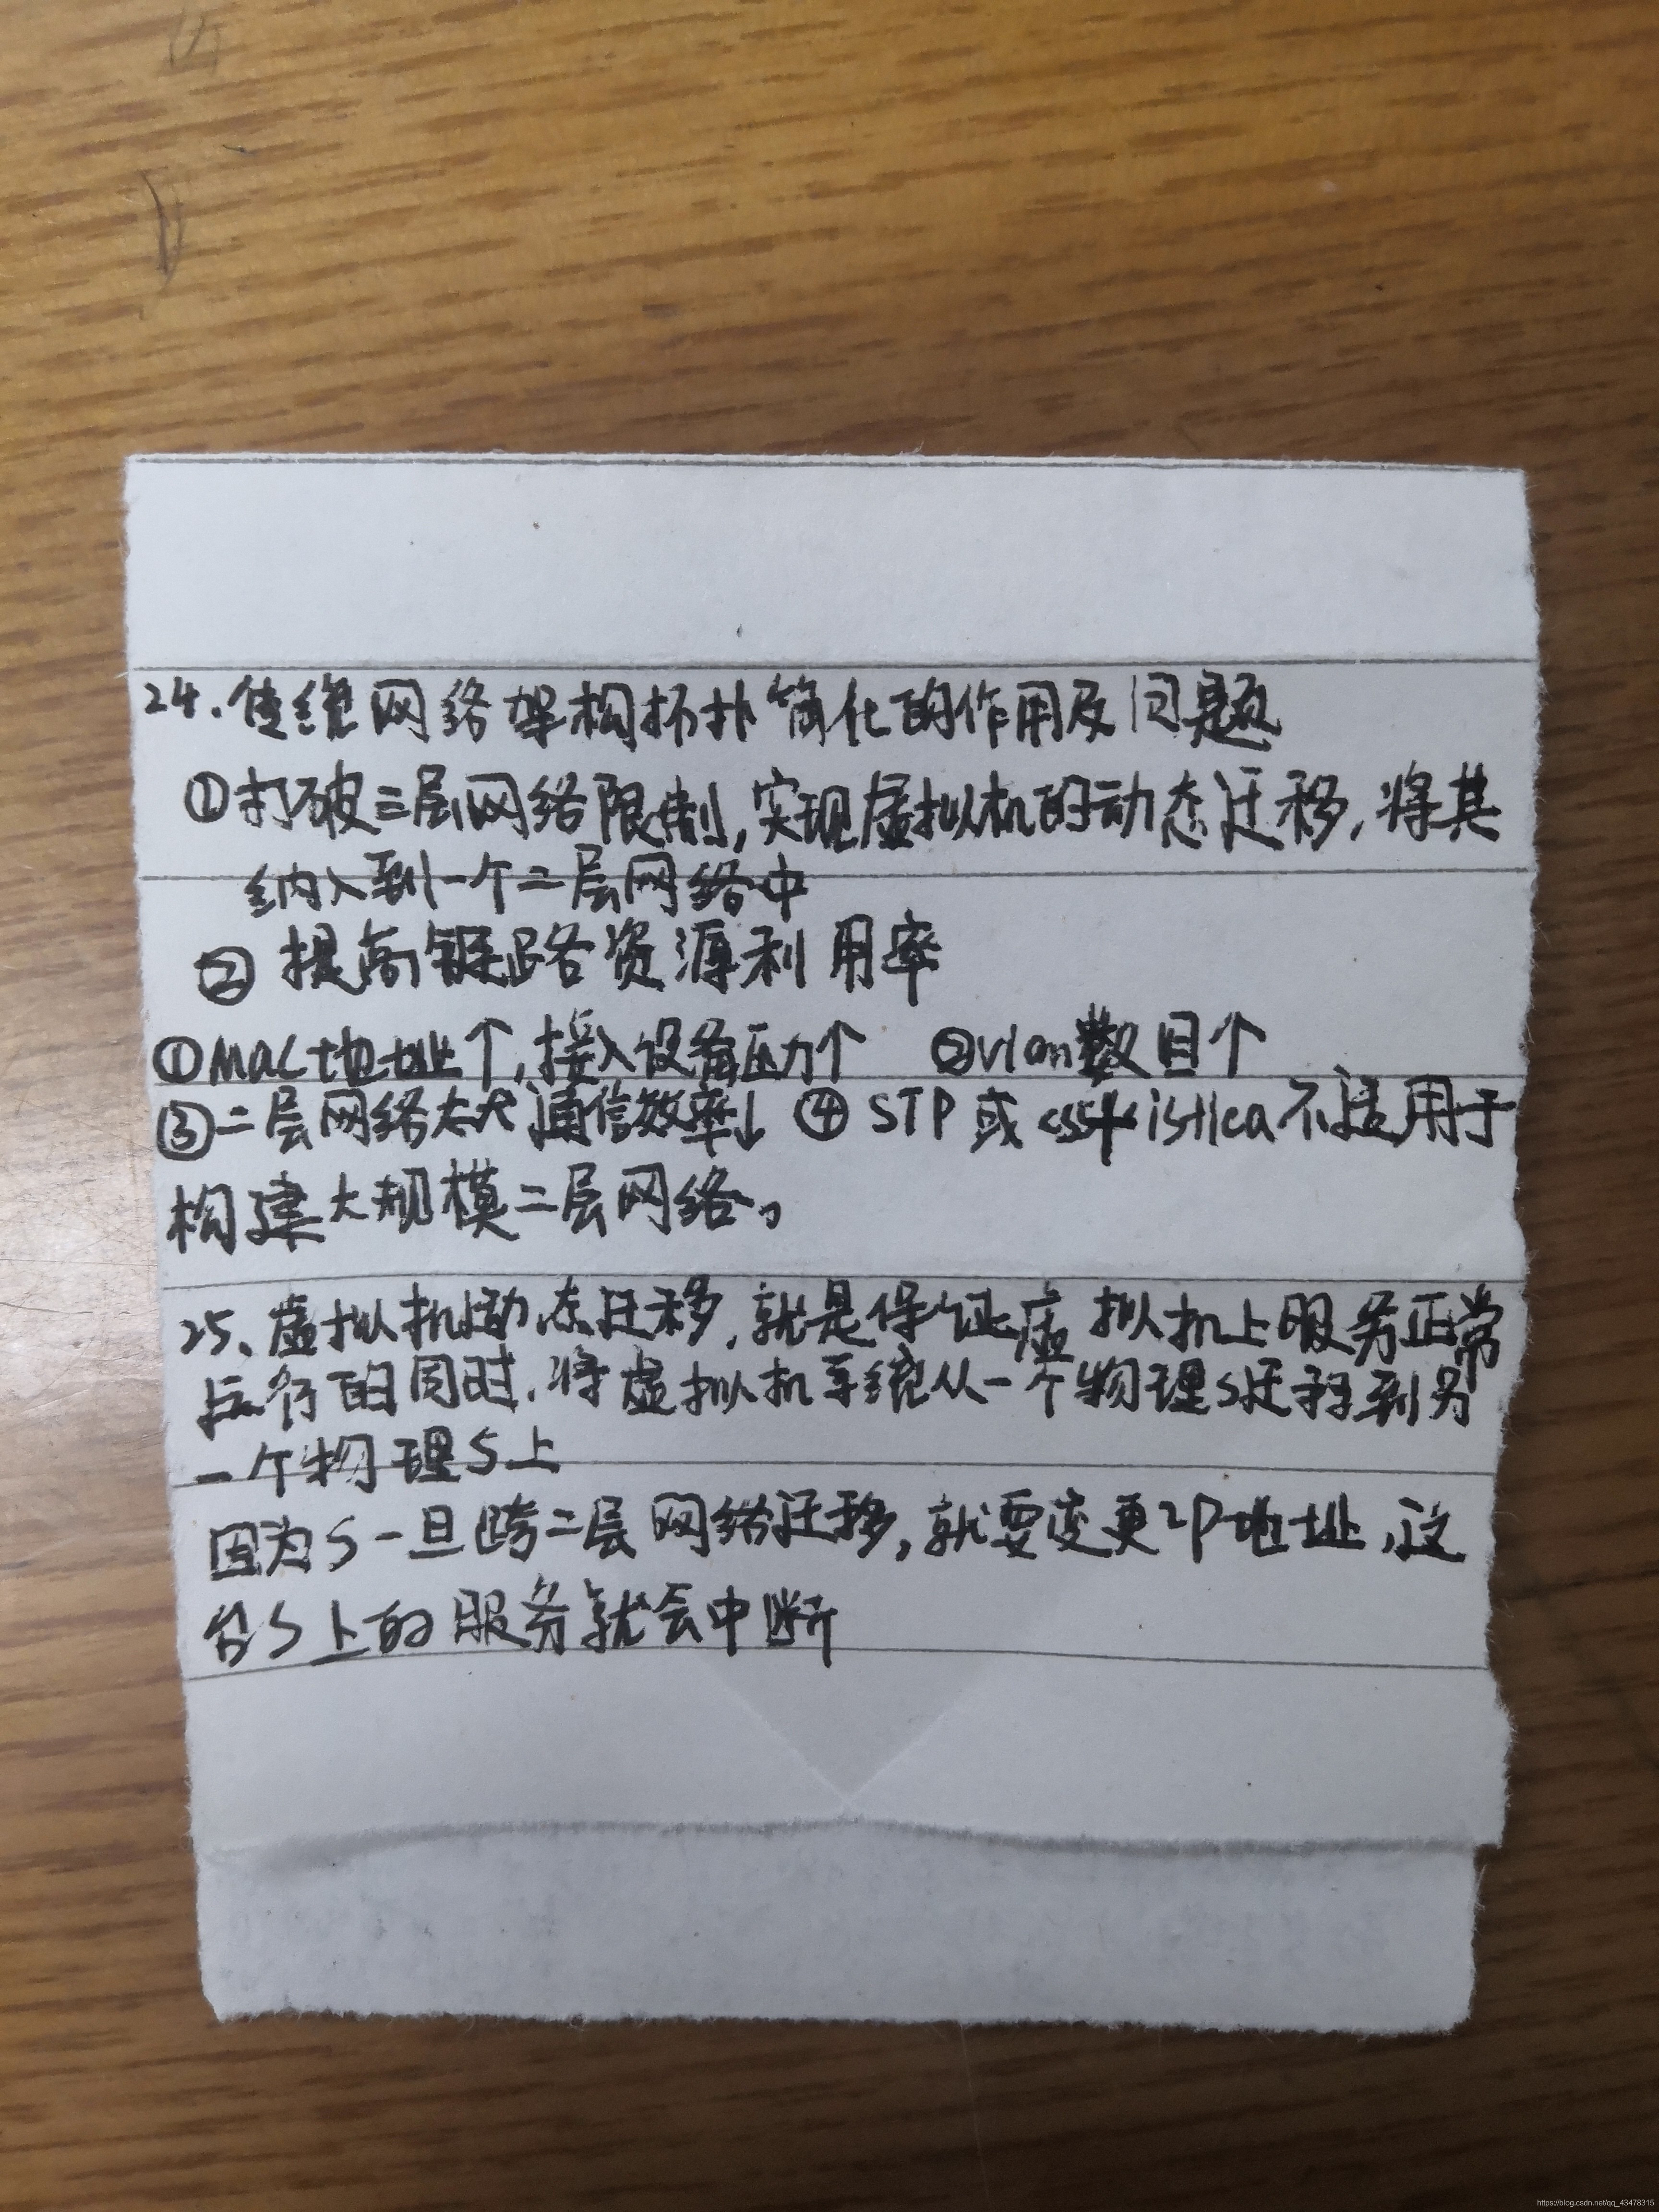 24.传统网络架构拓扑简化的作用及问题
①打破三层网络限制,实现虚拟机的动态迁移,将其
纳入到一个二层网络中
② 提高链路资源利用率
①MAC地址↑,接入设备压力↑ ②vlan数目↑
③二层网络太大通信效率↓ ④ STP或css+istack不适用于
构建大规模二层网络。
25、虚拟机动态迁移,就是保证虚拟机上服务正常
运行的同时,将虚拟机系统从一个物理S迁移到另
一个物理S上
因为S一旦跨二层网络迁移,就要变更IP地址,这
台S上的服务就会中断
https://blog.csdn.net/qq_43478315